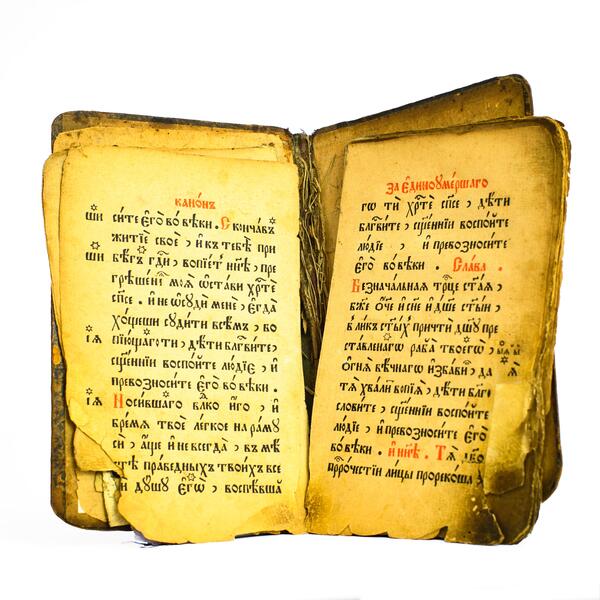 кано́нъ
ши
си́те є҆го̀ во́ вѣки . Сконча́въ
житїѐ своѐ , и҆ къ тебѣ̀ при
ши
бѣ́гъ гдⷭ҇и , вопїе́тъ ни́нѣ , пре
грѣше́нїѧ моѧ̀ ѡ҆ста́ви хрⷭ҇тѐ
спⷭ҇се . и҆ не ѡ҆судѝ менѐ , є҆гда̀
хо́щеши суди́ти всѣ́мъ , во
їѧ
пїю́щаго ти , дѣ́ти блгⷭ҇ви́те ,
сщ҃е́ннїи воспо́йте лю́дїе , и҆
превозноси́те є҆го̀ во́ вѣки .
їѧ
Носи́вшаго влⷣко и҆́го , и҆
бре́мѧ твоѐ ле́гкое на ра́му
сѝ , а҆́ще и҆ не всегда̀ , въ мѣ́
стѣ пра́ведныхъ твои́хъ все
ли ду́шу є҆гѡ̀ , воспѣ́вша
за є҆ди́ноуме́ршаго
гѡ тѝ хрⷭ҇тѐ спⷭ҇се , дѣ́ти
блгⷭ҇ви́те , сщ҃е́ннїи воспо́йте
лю́дїе , и҆ превозноси́те
є҆го̀ во́ вѣки . Сла́ва .
Безнача́льнаѧ трⷪ҇це ст҃а́ѧ ,
бж҃е ѻ҆́ч҃е и҆ сн҃е и҆ дш҃е ст҃ы́и ,
в ли́къ ст҃ы́хъ причтѝ дш҃у пре
ста́вленагѡ раба̀ твоегѡ̀ ,
ѻ҆гнѧ̀ вѣ́чнаго и҆зба́ви , да
тѧ̀ хва́литъ вопїѧ̀ , дѣ́ти блго
слови́те , сщ҃е́ннїи воспо́йте
лю́дїе , и҆ превозноси́те є҆го̀
во́ вѣки . и҆ ни́нѣ . Тѧ̀ дв҃о
прⷪ҇ро́честїи ли́цы прореко́ша